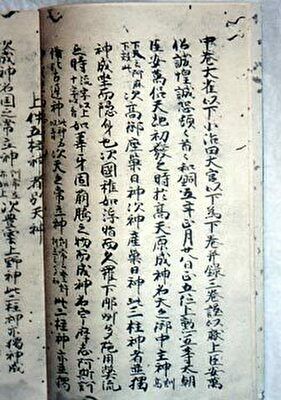 中卷大雀以下小治田大宮以下為下卷并録三卷謹以獻上臣安萬
侶誠惶誠恐頓々首々和銅五年正月廿八日正五位上勲五等太朝
臣安萬侶天地初發之時於高天原成神名天之御中主神訓高
下天云阿麻下效此次高御産巣日神次神産巣日神此三柱神者並獨
神成坐而隠身也次國稚如浮脂而久羅下那州多陀用弊流
之時流字以上十字以音如葦牙因萠騰之物而成神名宇摩志阿斯訶
備比古遅神此神名以音次天之常立神此二柱神亦並獨
上件五柱神者別天神
次成神名國之常立神次豊雲上野神此二柱神亦獨神成